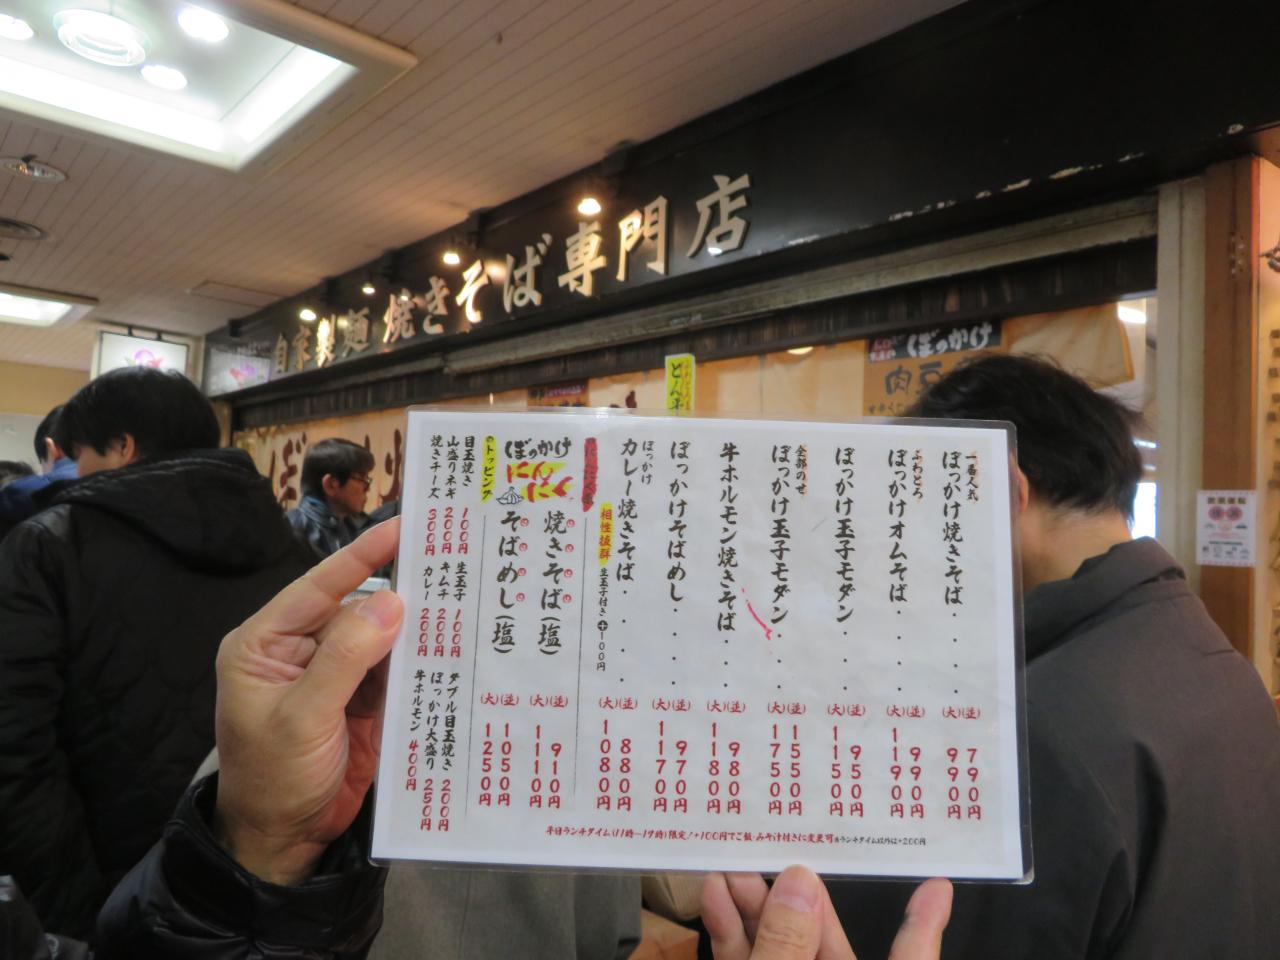 自家製麺 焼きそば専門店
ぼっかけ
肉豆
一番人気
ぼっかけ焼きそば
(並) 790円
(大) 990円
ふわとろ
ぼっかけオムそば
(並) 990円
(大) 1190円
ぼっかけ玉子モダン
(並) 950円
(大) 1150円
全部のせ
ぼっかけ玉子モダン
(並) 1550円
(大) 1750円
牛ホルモン焼きそば
(並) 980円
(大) 1180円
ぼっかけそばめし
(並) 970円
(大) 1170円
ぼっかけ
カレー焼きそば
(並) 880円
(大) 1080円
相性抜群 生玉子付き+100円
ぼっかけ
焼きそば(塩)
(並) 910円
(大) 1110円
そばめし(塩)
(並) 1050円
(大) 1250円
のトッピング
目玉焼き 100円 生玉子 100円 ダブル目玉焼き 200円
山盛りネギ 200円 キムチ 200円 ぼっかけ大盛り 250円
焼きチーズ 300円 カレー 200円 牛ホルモン 400円
平日ランチタイム(11時〜17時)限定!+100円でご飯・みそ汁付きに変更可※ランチタイム以外は+200円